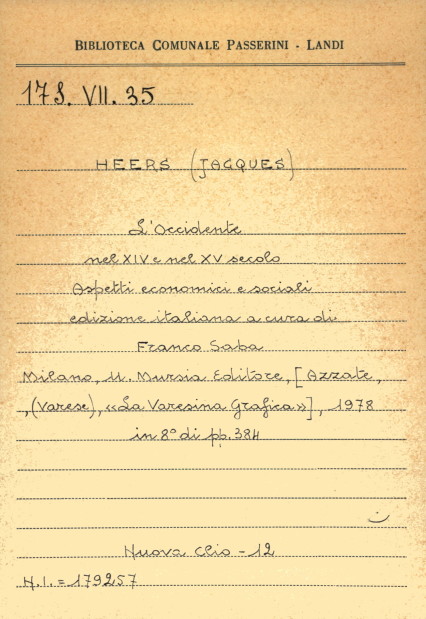 BIBLIOTECA COMUNALE PASSERINI - LANDI
17S. VII. 35
HEERS (JACQUES)
L'Occidente
nel XIV e nel XV secolo
Aspetti economici e sociali
edizione italiana a cura di
Franco Saba
Milano, U. Mursia Editore, [Azzate,
,(Varese), «La Varesina Grafica»], 1978
in 8° di pp. 384
Nuova Clio - 12
N.I. = 179257